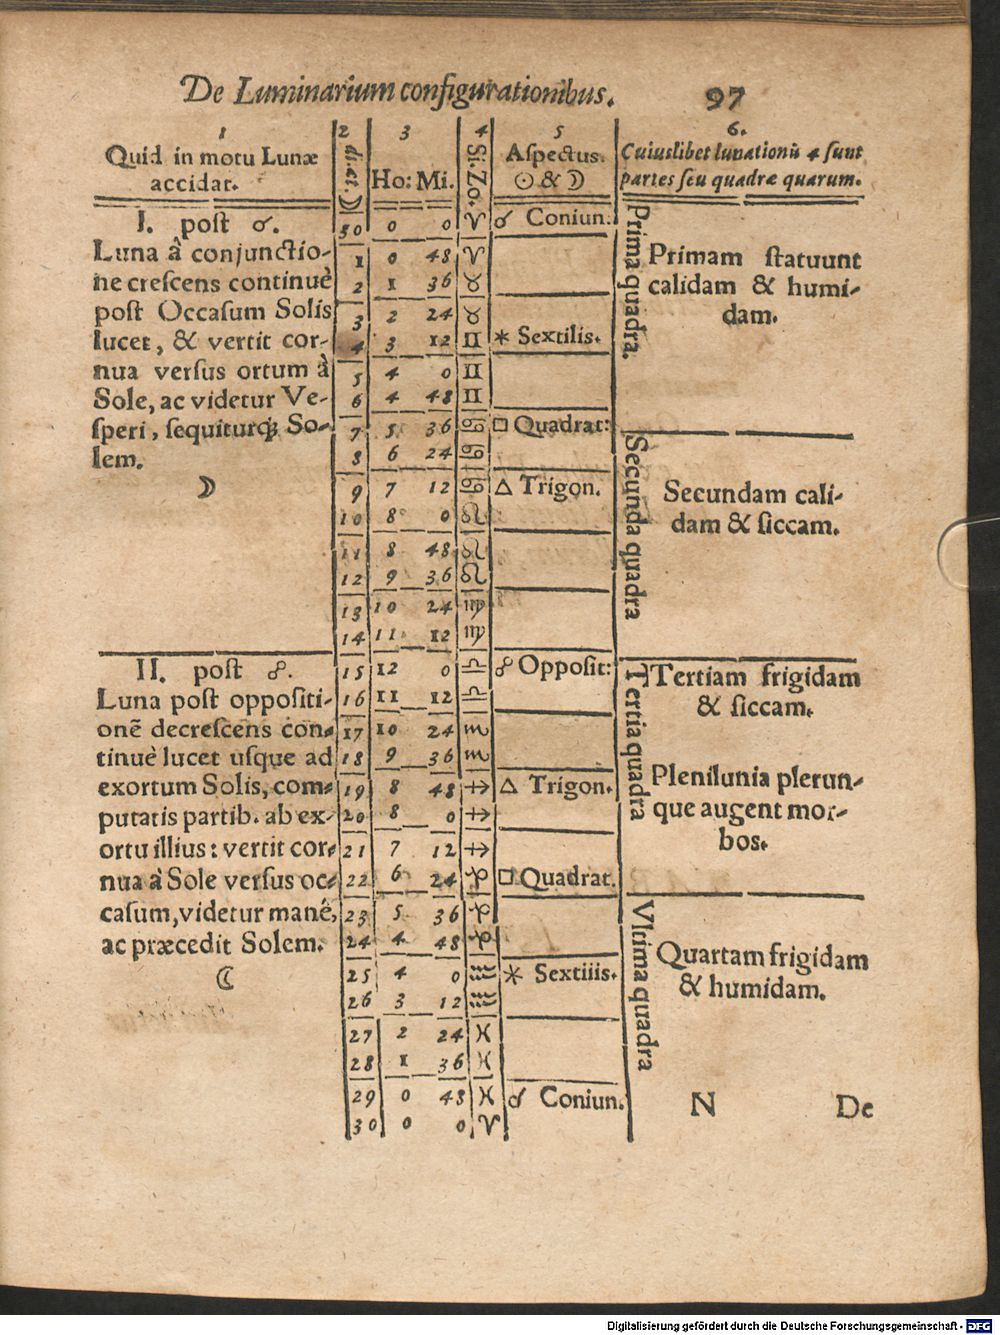 De Luminarium configurationibus. 97
1
Quid in motu Lunæ
accidat.
I. post ☌.
Luna à conjunctio-
ne crescens continuè
post Occasum Solis
lucet, & vertit cor-
nua versus ortum à
Sole, ac videtur Ve-
speri, sequiturq; So-
lem.
☽
II. post ☍.
Luna post oppositi-
onē decrescens con-
tinuè lucet usque ad
exortum Solis, com-
putatis partib. ab ex-
ortu illius: vertit cor-
nua à Sole versus oc-
casum, videtur manè,
ac præcedit Solem.
☾
2 3 4 5
di. æt. ☽ Ho: Mi. Si. Zo. Aspectus.
☉ & ☽
30 0 0 ♈ ☌ Coniun.
1 0 48 ♈
2 1 36 ♉
3 2 24 ♉
4 3 12 ♊ ⚹ Sextilis.
5 4 0 ♊
6 4 48 ♊
7 5 36 ♋ □ Quadrat:
8 6 24 ♋
9 7 12 ♋ △ Trigon.
10 8 0 ♌
11 8 48 ♌
12 9 36 ♌
13 10 24 ♍
14 11 12 ♍
15 12 0 ♎ ☍ Opposit:
16 11 12 ♎
17 10 24 ♏
18 9 36 ♏
19 8 48 ♐ △ Trigon.
20 8 0 ♐
21 7 12 ♐
22 6 24 ♑ □ Quadrat.
23 5 36 ♑
24 4 48 ♑
25 4 0 ♒ ⚹ Sextiiis.
26 3 12 ♒
27 2 24 ♓
28 1 36 ♓
29 0 48 ♓ ☌ Coniun.
30 0 0 ♈
6.
Cuiuslibet lunationis 4 sunt
partes seu quadræ quarum.
Prima quadra.
Primam statuunt
calidam & humi-
dam.
Secunda quadra
Secundam cali-
dam & siccam.
Tertia quadra
Tertiam frigidam
& siccam.
Plenilunia plerun-
que augent mor-
bos.
Vltima quadra
Quartam frigidam
& humidam.
N De
Digitalisierung gefördert durch die Deutsche Forschungsgemeinschaft - DFG